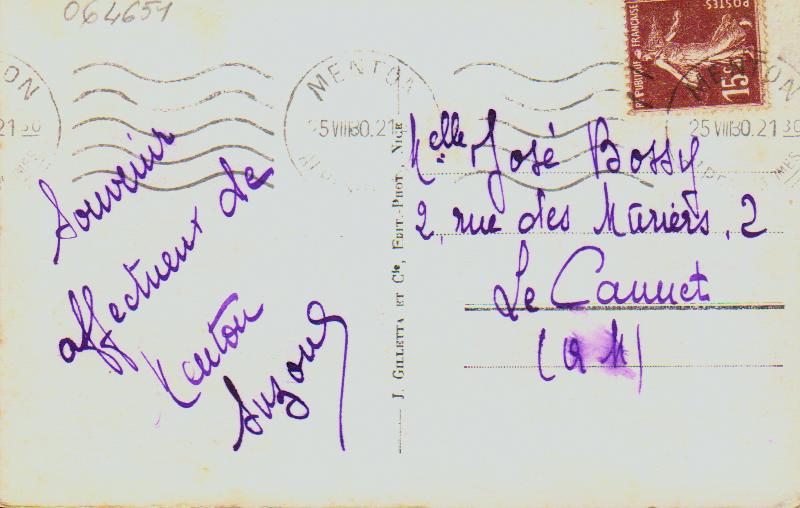 064651
POSTES
REPUBLIQUE FRANÇAISE
15c
MENTON
25 VIII 30. 21 30
MENTON
25 VIII 30. 21
Souvenir
affectueux de
Menton
Suzon
J. GILLETTA ET Cie, EDIT.-PHOT. NICE
Melle José Bossy
2, rue des Muriers, 2
Le Cannet
(A M)